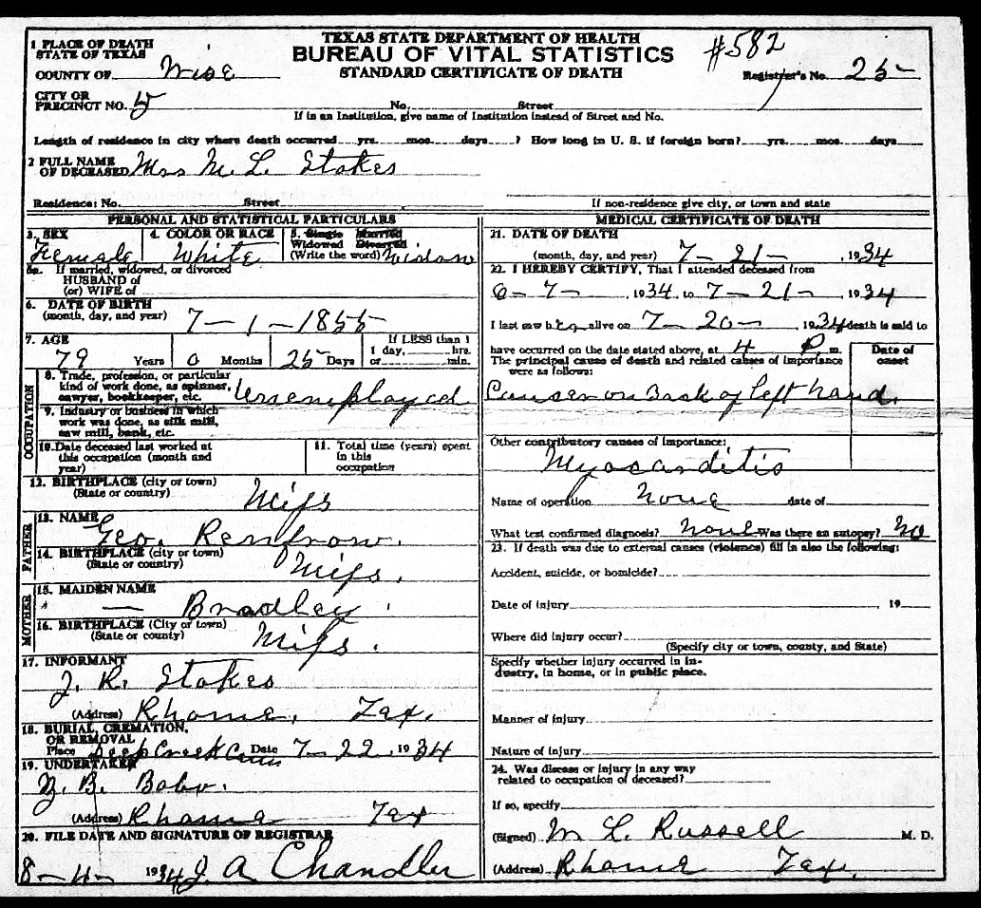 TEXAS STATE DEPARTMENT OF HEALTH
BUREAU OF VITAL STATISTICS
STANDARD CERTIFICATE OF DEATH
#582
Registrar's No. 25-
1 PLACE OF DEATH
STATE OF TEXAS
COUNTY OF Wise
CITY OR
PRECINCT NO. 5
No. Street
If in an Institution, give name of Institution instead of Street and No.
Length of residence in city where death occurred yrs. mos. days ? How long in U. S. if foreign born? yrs. mos. days
2 FULL NAME
OF DECEASED Mrs M. L. Stokes
Residence: No. Street If non-residence give city, or town and state
PERSONAL AND STATISTICAL PARTICULARS
3. SEX
Female
4. COLOR OR RACE
White
5. Single Married
Widowed Divorced
(Write the word) Widow
5a. If married, widowed, or divorced
HUSBAND of
(or) WIFE of
6. DATE OF BIRTH
(month, day, and year) 7-1-1855
7. AGE
79 Years 0 Months 25 Days
If LESS than 1
1 day, hrs.
or min.
OCCUPATION
8. Trade, profession, or particular
kind of work done, as spinner,
sawyer, bookkeeper, etc. Unemployed
9. Industry or business in which
work was done, as silk mill,
saw mill, bank, etc.
10. Date deceased last worked at
this occupation (month and
year)
11. Total time (years) spent
in this
occupation
12. BIRTHPLACE (city or town)
(State or country) Miss
FATHER
13. NAME
Geo. Renfrow.
14. BIRTHPLACE (city or town)
(State or country) Miss.
MOTHER
15. MAIDEN NAME
— Bradley.
16. BIRTHPLACE (City or town)
(State or county) Miss.
17. INFORMANT
J. R. Stokes
(Address) Rhome, Tex.
18. BURIAL, CREMATION,
OR REMOVAL
Place Deep Creek Date 7-22, 1934
19. UNDERTAKER
B. Bobo.
(Address) Rhome Tex
20. FILE DATE AND SIGNATURE OF REGISTRAR
8-4- 1934 J. A Chandler
MEDICAL CERTIFICATE OF DEATH
21. DATE OF DEATH
(month, day, and year) 7-21-, 1934
22. I HEREBY CERTIFY, That I attended deceased from
6-7-, 1934, to 7-21-, 1934
I last saw her alive on 7-20-, 1934 death is said to
have occurred on the date stated above, at 4 P m.
The principal cause of death and related causes of importance
were as follows:
Date of
onset
Cancer on Back of left hand.
Other contributory causes of importance:
Myocarditis
Name of operation none date of
What test confirmed diagnosis? none Was there an autopsy? No
23. If death was due to external causes (violence) fill in also the following:
Accident, suicide, or homicide?
Date of injury , 19
Where did injury occur?
(Specify city or town, county, and State)
Specify whether injury occurred in in-
dustry, in home, or in public place.
Manner of injury
Nature of injury
24. Was disease or injury in any way
related to occupation of deceased?
If so, specify
(Signed) M L. Russell M. D.
(Address) Rhome Tex.